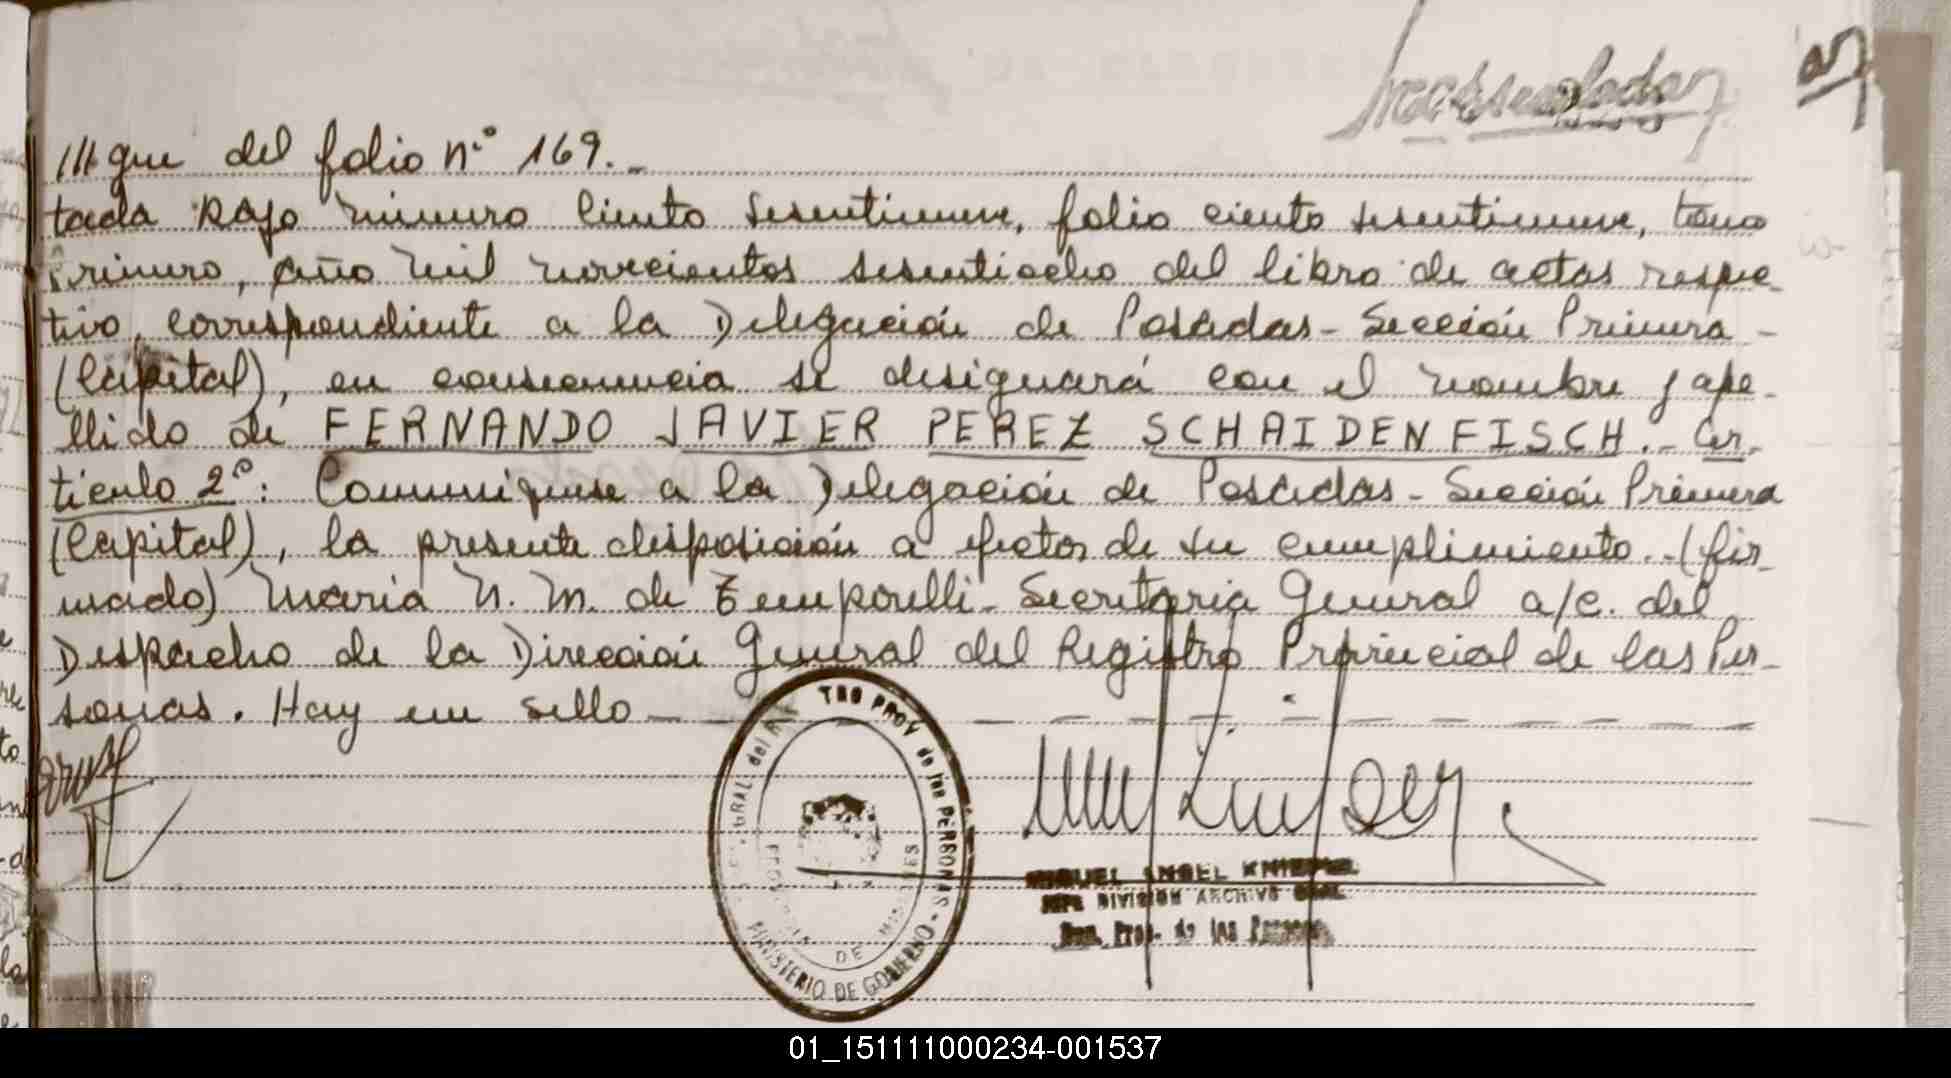 Inmaculada
///que del folio n.° 169.-
tada bajo número ciento sesentinueve, folio ciento sesentinueve, tomo
Primero, año mil novecientos sesentiocho del libro de actas respec-
tivo, correspondiente a la Delegación de Posadas - Sección Primera -
(Capital), en consecuencia se designará con el nombre y ape-
llido de FERNANDO JAVIER PEREZ SCHAIDENFISCH.- Ar-
tículo 2°: Comuníquese a la Delegación de Posadas - Sección Primera
(Capital), la presente disposición a efectos de su cumplimiento.- (fir-
mado) María N. M. de Temporelli - Secretaria General a/c. del
Despacho de la Dirección General del Registro Provincial de las Per-
sonas. Hay un sello
GRAL del PROV de las PERSONAS - MINISTERIO DE GOBIERNO
PROVINCIA DE MISIONES
MIGUEL ANGEL
JEFE DIVISION ARCHIVO GRAL
Prov. de las Personas
01_151111000234-001537